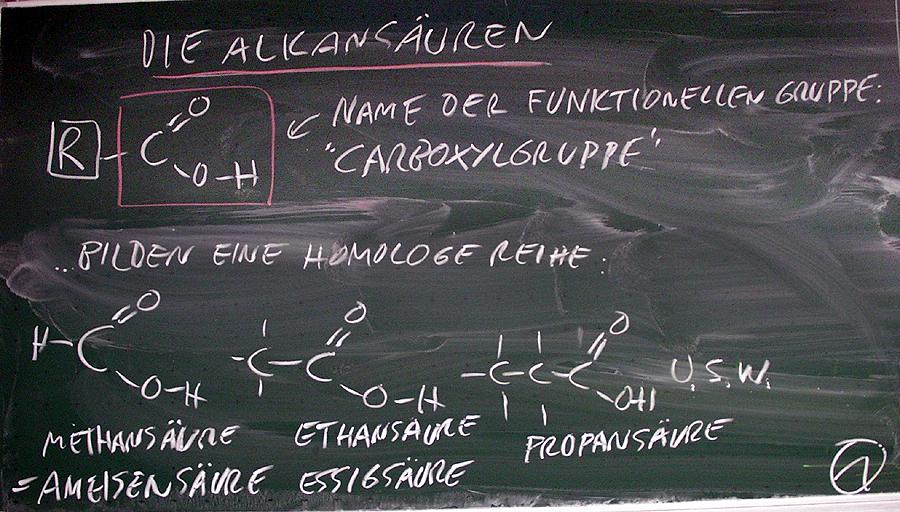 DIE ALKANSÄUREN
R C O O-H
← NAME DER FUNKTIONELLEN GRUPPE:
"CARBOXYLGRUPPE"
...BILDEN EINE HOMOLOGE REIHE:
H-C O O-H C-C O O-H C-C-C O OH U.S.W.
METHANSÄURE ETHANSÄURE PROPANSÄURE
=AMEISENSÄURE ESSIGSÄURE